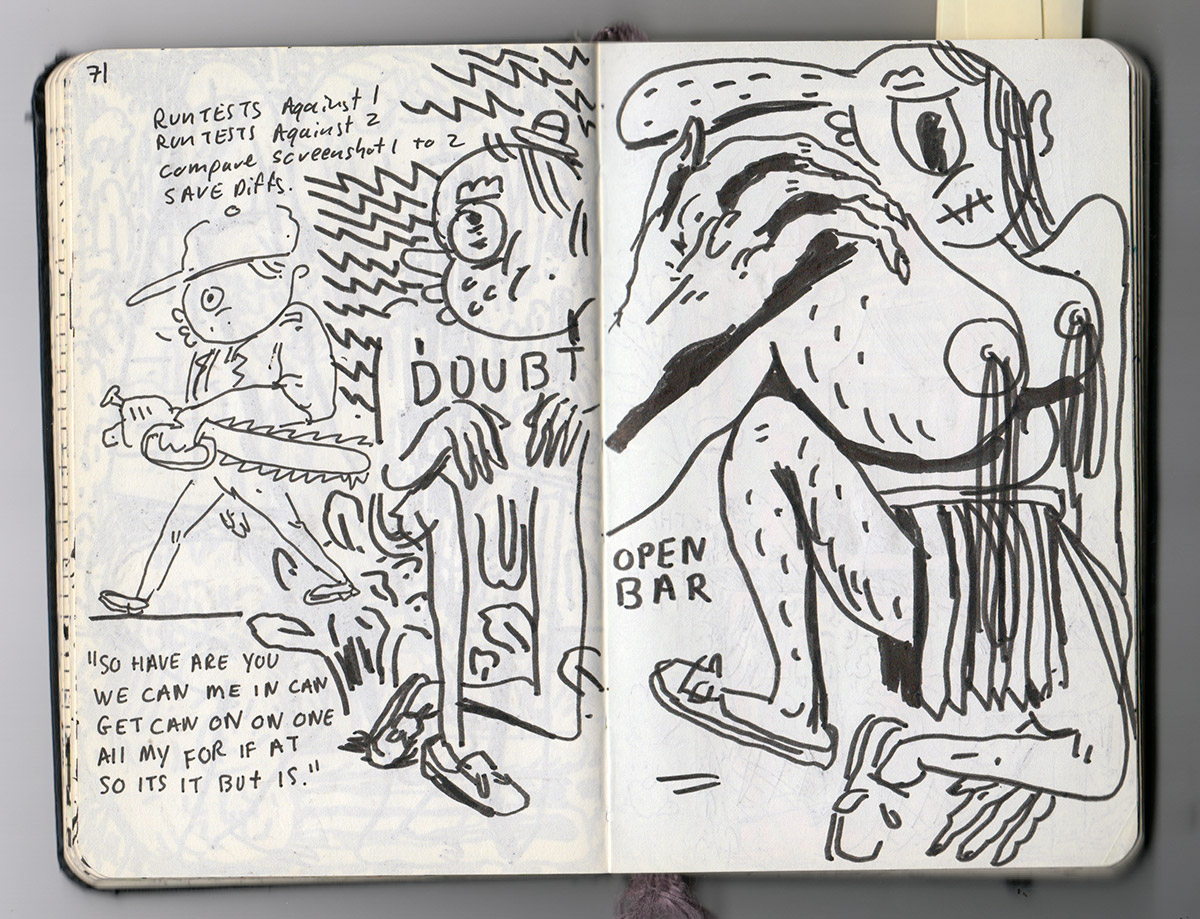 71
RUN TESTS Against 1
RUN TESTS Against 2
compare screenshot 1 to 2
SAVE Diffs.
DOUBT
"SO HAVE ARE YOU
WE CAN ME IN CAN
GET CAN ON ON ONE
All MY FOR IF AT
SO ITS IT BUT IS."
OPEN
BAR